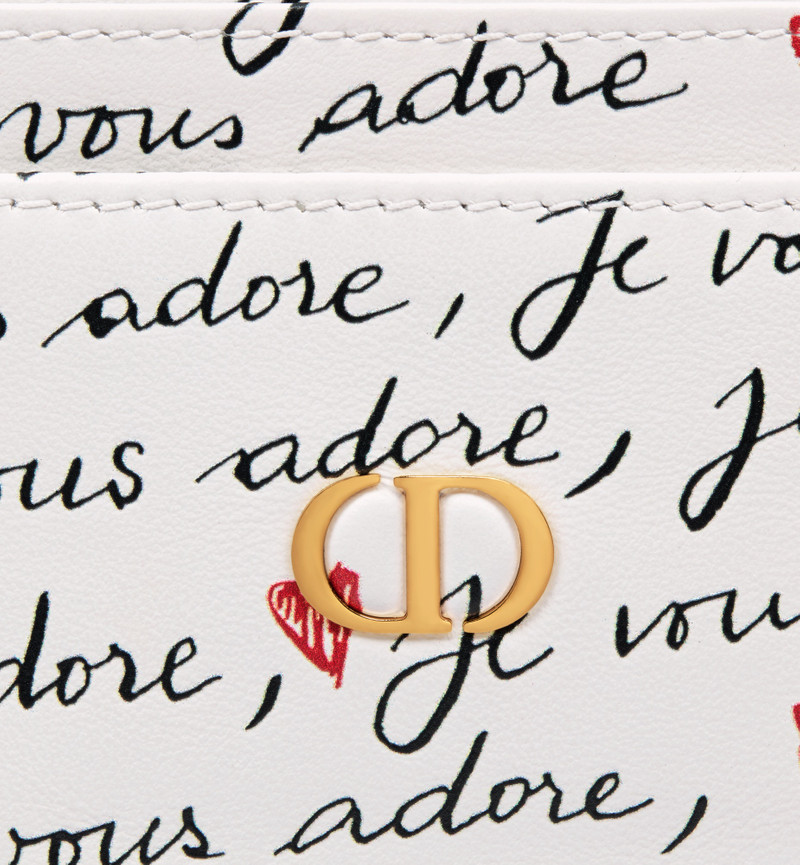 vous adore
adore, Je vo
ous adore, Je
CD
dore, Je vou
vous adore,